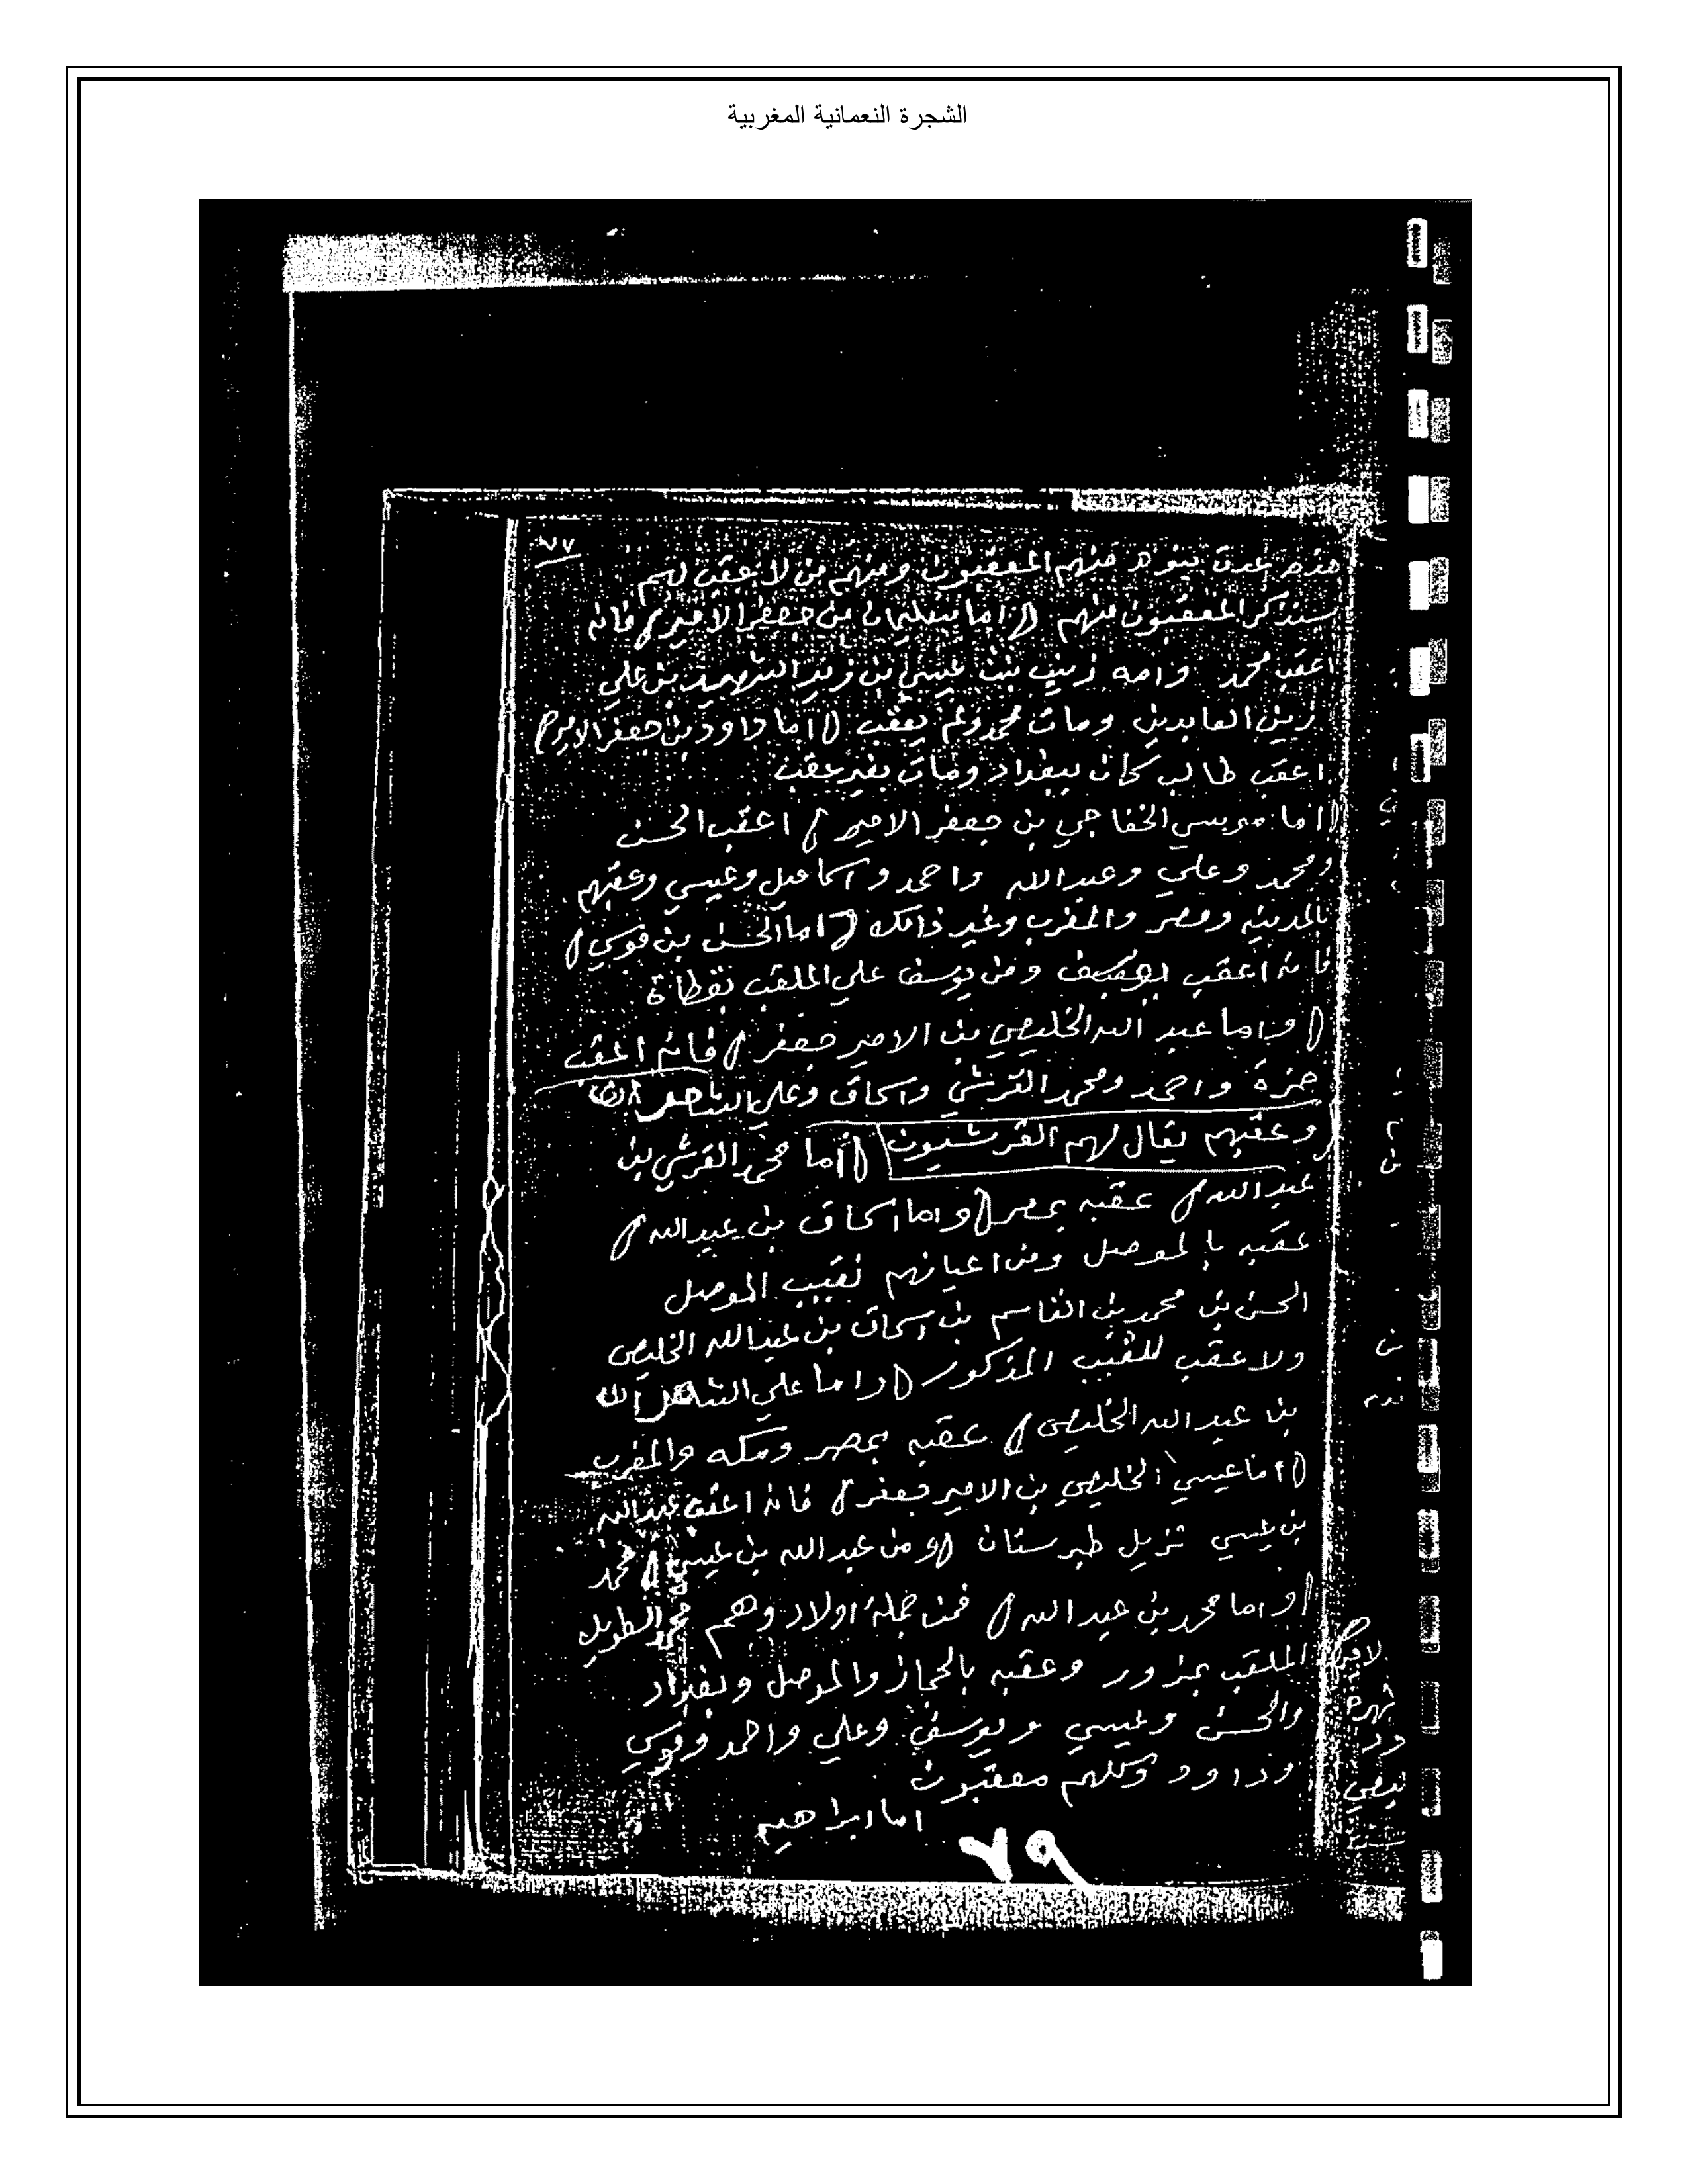 الشجرة النعمانية المغربية
٧٧
هذه عدة بنوه منهم المعقبون ومنهم من لا عقب لهم
سنذكر المعقبون منهم اما سليمان بن جعفر الامير فانه
اعقب محمد وامه زينب بنت عيسى بن زيد الشهيد بن علي
زين العابدين ومات محمد ولم يعقب اما داود بن جعفر الامير
اعقب طالب كان ببغداد ومات بغير عقب
اما موسي الخفاجي بن جعفر الامير اعقب الحسن
ومحمد وعلي وعبدالله واحمد واسماعيل وعيسي وعقبهم
بالمدينه ومصر والمغرب وغير ذالك اما الحسن بن موسي
فانه اعقب يوسف ومن يوسف علي الملقب
واما عبد الله الخليصي بن الامير جعفر فانه اعقب
حمزة واحمد ومحمد القرشي واسحاق وعلي
وعقبهم يقال لهم القرشيون اما محمد القرشي بن
عبدالله عقبه بمصر واما اسحاق بن عبدالله
عقبه بالموصل ومن اعيانهم نقيب الموصل
الحسن بن محمد بن القاسم بن اسحاق بن عبدالله الخليصي
ولا عقب للنقيب المذكور واما علي
بن عبدالله الخليصي عقبه بمصر ومكه والمغرب
اما عيسي الخليصي بن الامير جعفر فانه اعقب عبدالله
بن عيسي نزيل طبرستان ومن عبدالله بن عيسي محمد
واما محمد بن عبدالله فمن جملة اولاد وهم محمد الطويل
الملقب بمزور وعقبه بالحجاز والموصل وبغداد
والحسن وعيسي ويوسف وعلي واحمد وموسي
وداود وكلهم معقبون
اما ابراهيم
٧٩